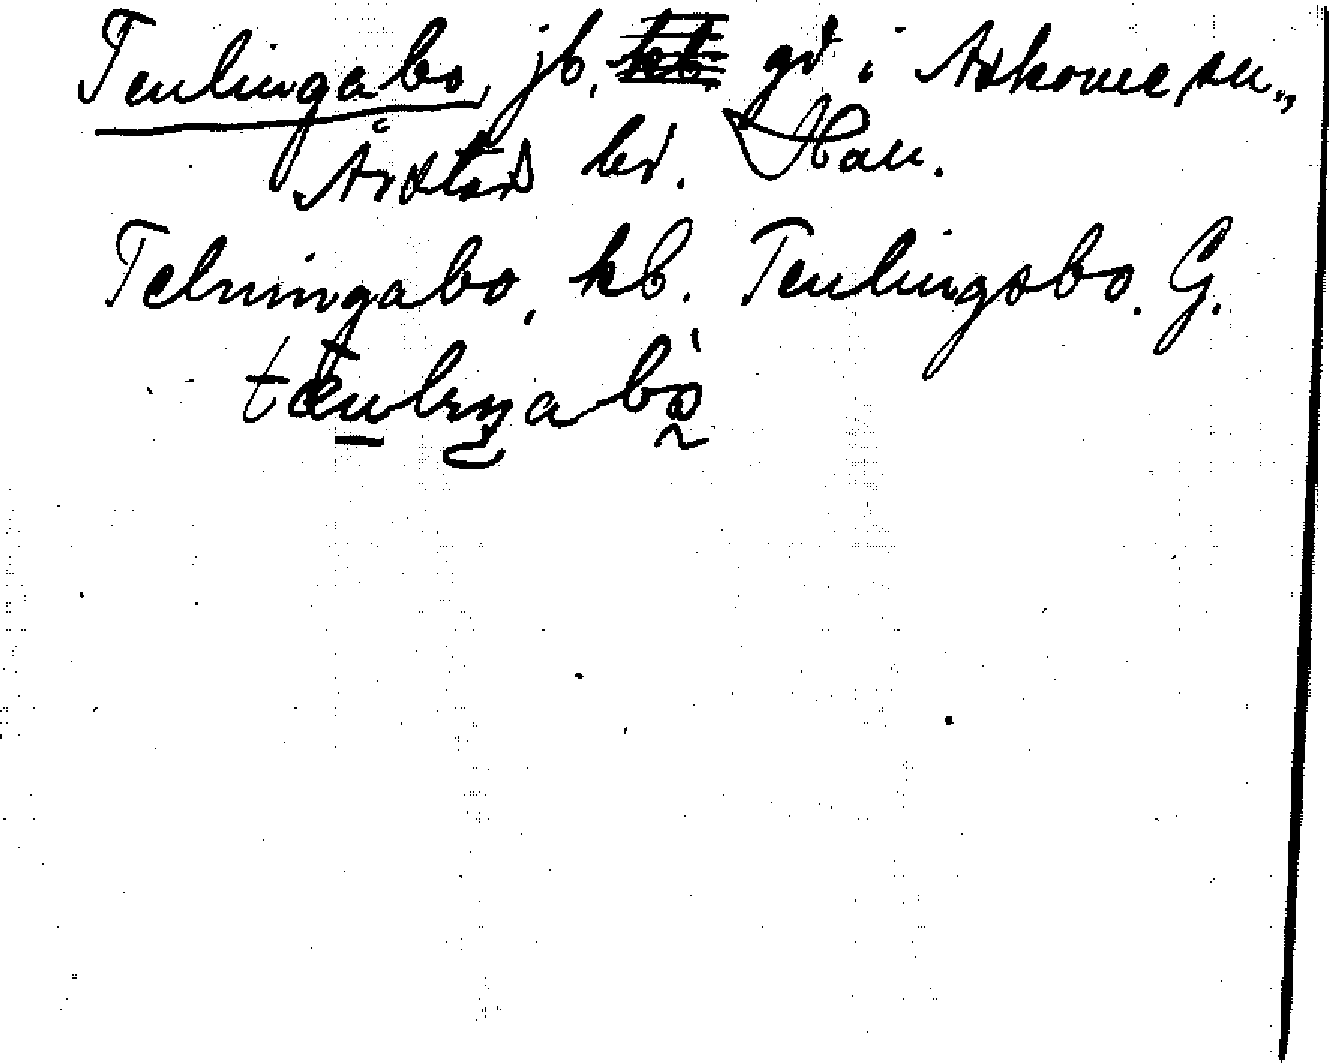 Tenlingabo, jb. gd i Askome sn.,
Årstad hd. Hall.
Telningabo, kb. Tenlingsbo. G.